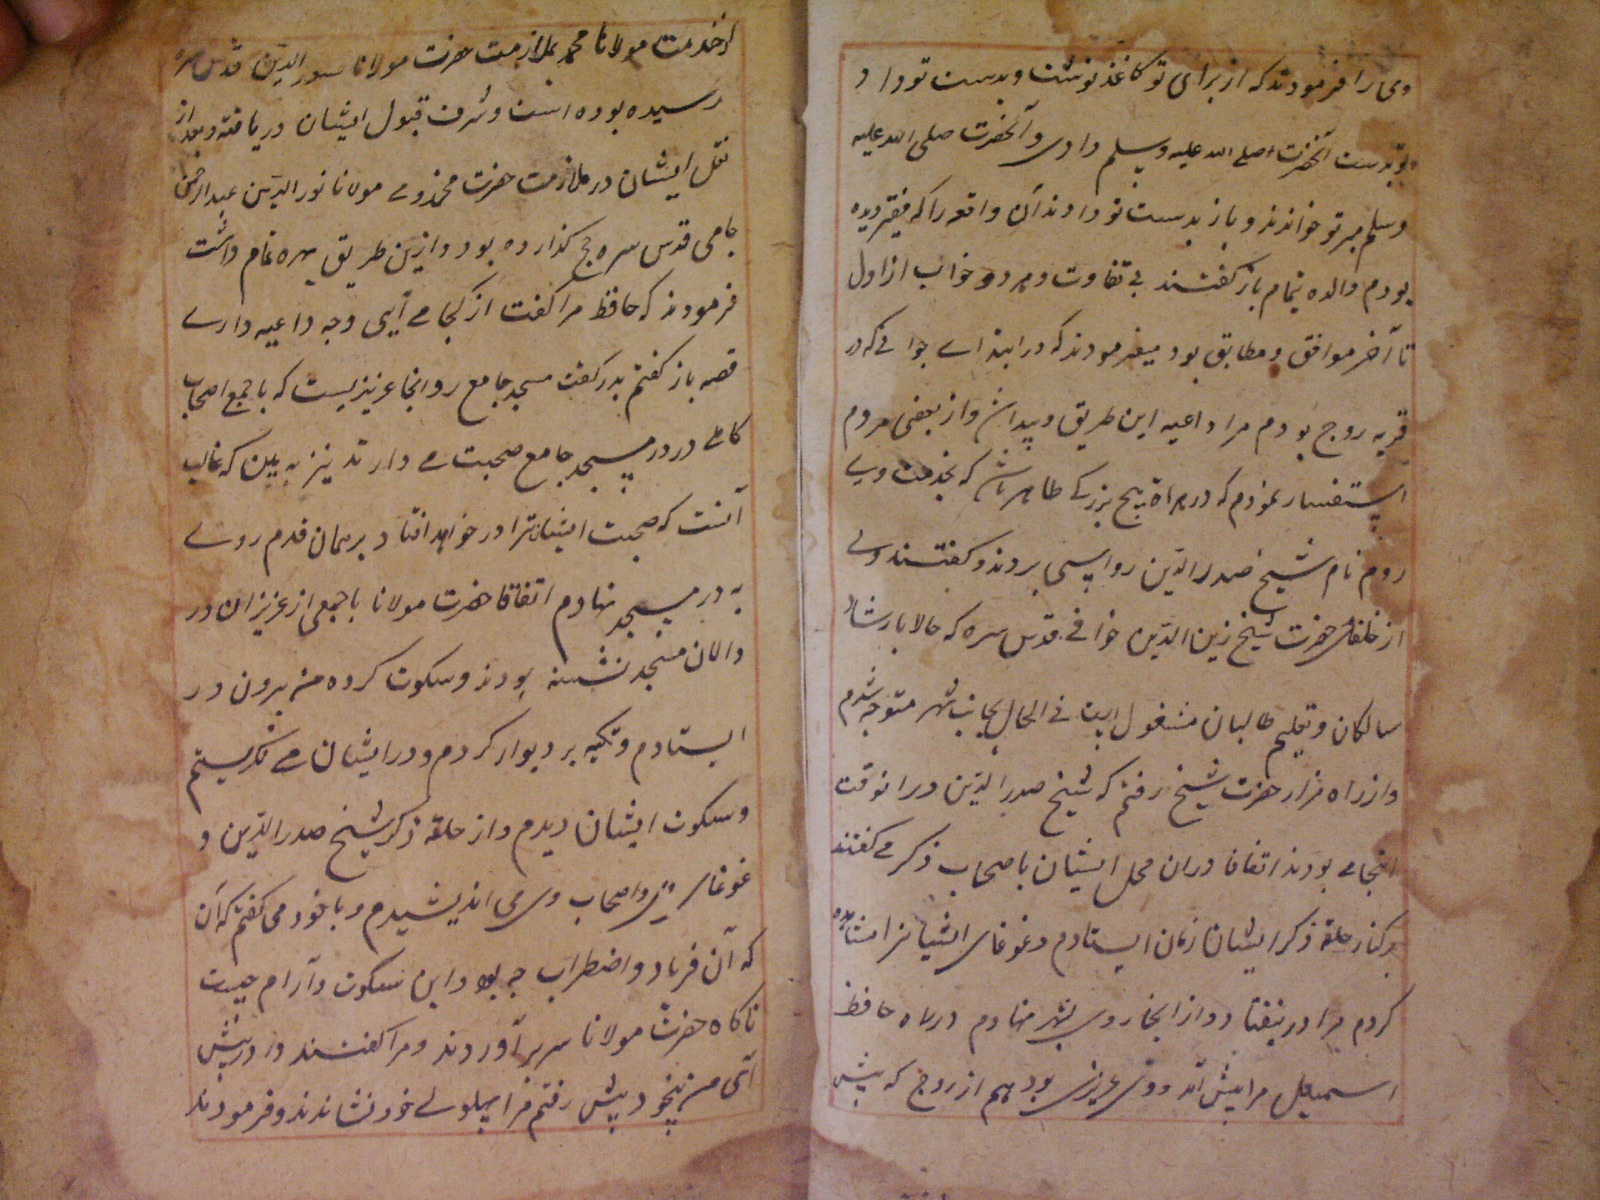 وی را فرمودند که از برای تو کاغذ نوشت و بدست تو داد و
تو بدست آنحضرت صلی الله علیه وسلم دادی و آنحضرت صلی الله علیه
وسلم بر تو خواندند و باز بدست تو دادند آن واقعه را که فقیر دیده
بودم والده بتمام باز گفتند بی تفاوت و هر دو خواب از اول
تا آخر موافق و مطابق بود میفرمودند که در ابتداے جوانی که در
قریه روج بودم مرا داعیه این طریق پیدا شد و از بعضی مردم
استفسار نمودم که در هراة هیچ بزرگے ظاهر باشد که بخدمت وے
روم نام شیخ صدر الدین رواسی بردند و گفتند وے
از خلفای حضرت شیخ زین الدین خوافی قدس سره که حالا بارشاد
سالکان و تعلیم طالبان مشغول است فی الحال بجانب شهر متوجه شدم
و از راه مزار حضرت شیخ رفتم که شیخ صدر الدین در انوقت
انجا مے بودند اتفاقا دران محل ایشان باصحاب ذکر مے گفتند
بر کنار حلقه ذکر ایشان زمان ایستادم و غوغای ایشانرا مشاهده
کردم مرا در نیفتاد و از انجا روی بشهر نهادم در راه حافظ
اسمعیل مرا پیش آمد و وی عزیزی بود هم از روج که پیش
از خدمت مولانا محمد بملازمت حضرت مولانا سعد الدین قدس سره
رسیده بوده است و شرف قبول ایشان دریافته و بعد از
نقل ایشان در ملازمت حضرت مخدومے مولانا نور الدین عبد الرحمن
جامی قدس سره حج گذارده بود و ازین طریق بهره تمام داشت
فرمودند که حافظ مرا گفت از کجا مے آیی و چه داعیه دارے
قصه باز گفتم بدر گفت مسجد جامع رو انجا عزیزیست که با جمع اصحاب
گاهے در در مسجد جامع صحبت مے دارند نیز به بین که غالب
آنست که صحبت ایشان ترا در خواهد افتاد بر همان قدم روے
به در مسجد نهادم اتفاقا حضرت مولانا با جمعی از عزیزان در
دالان مسجد نشسته بودند و سکوت کرده من برون در
ایستادم و تکیه بر دیوار کردم و در ایشان مے نگریستم
و سکوت ایشان دیدم و از حلقه ذکر شیخ صدر الدین و
غوغاے وی و اصحاب وی می اندیشیدم و با خود می گفتم که آن
که آن فریاد و اضطراب چه بود و این سکوت و آرام چیست
ناگاه حضرت مولانا سر بر آوردند و مرا گفتند در پیش
آی من بیخود پیش رفتم مرا پهلوے خود نشاندند و فرمودند